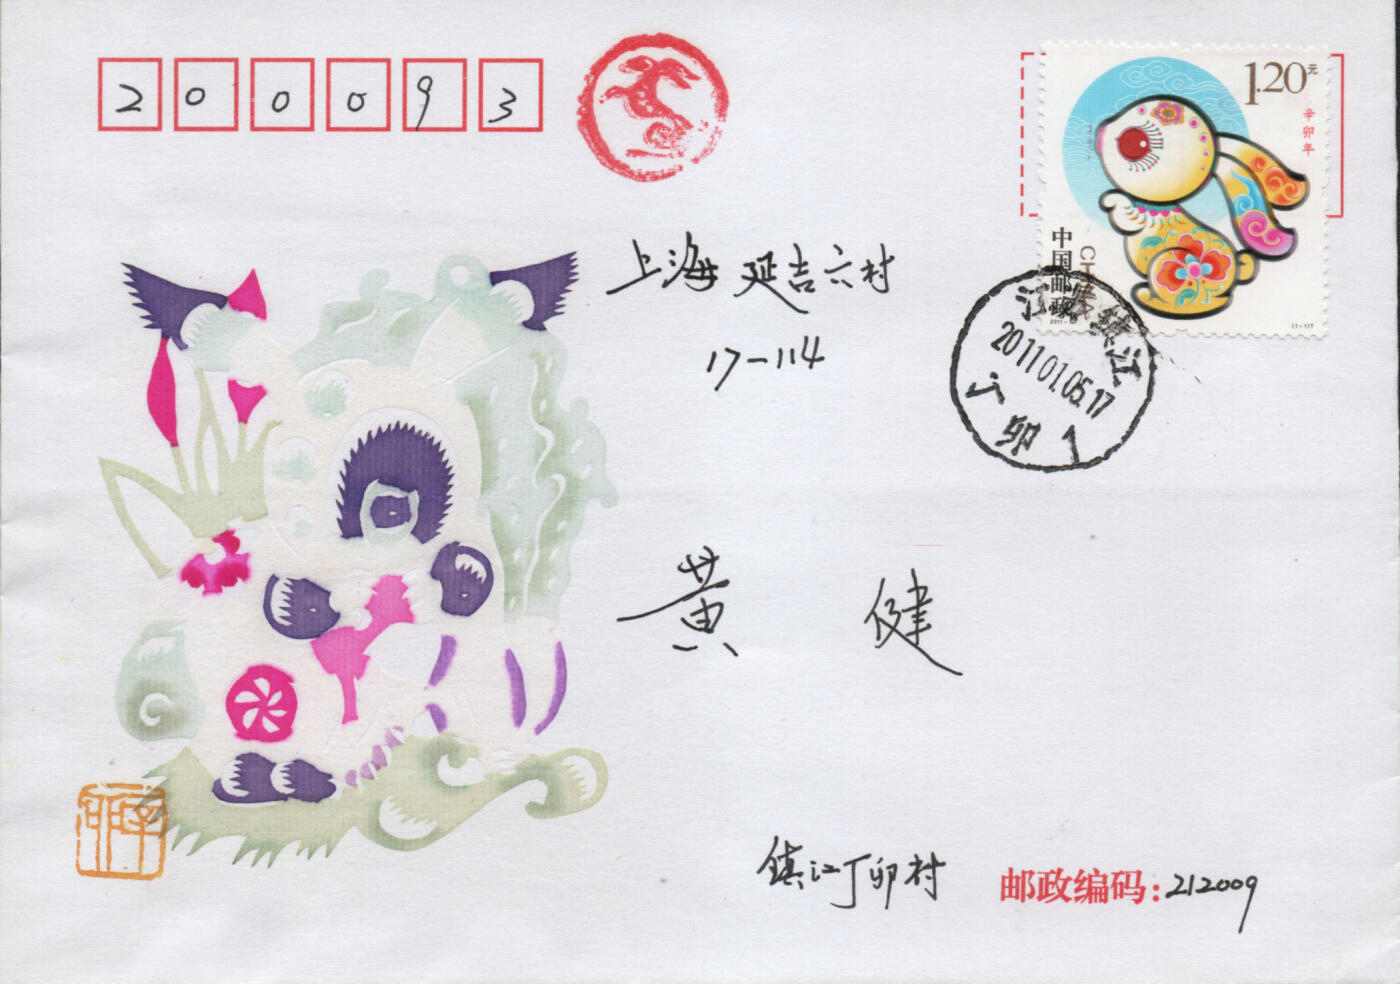 200093
1.20元
辛卯年
中国邮政
CHINA
2011-1
(1-1)T
上海 延吉六村
17-114
江苏镇江
2011.01.05.17
丁卯 1
黄 健
辛卯
镇江丁卯村
邮政编码:212009